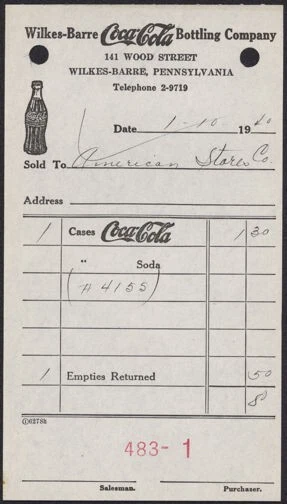 Wilkes-Barre Coca-Cola Bottling Company
141 WOOD STREET
WILKES-BARRE, PENNSYLVANIA
Telephone 2-9719
Date 1-10 1940
Sold To American Stores Co.
Address
1 Cases Coca-Cola 1 30
" Soda
(#4155)
1 Empties Returned 50
80
©6278h
483- 1
Salesman. Purchaser.